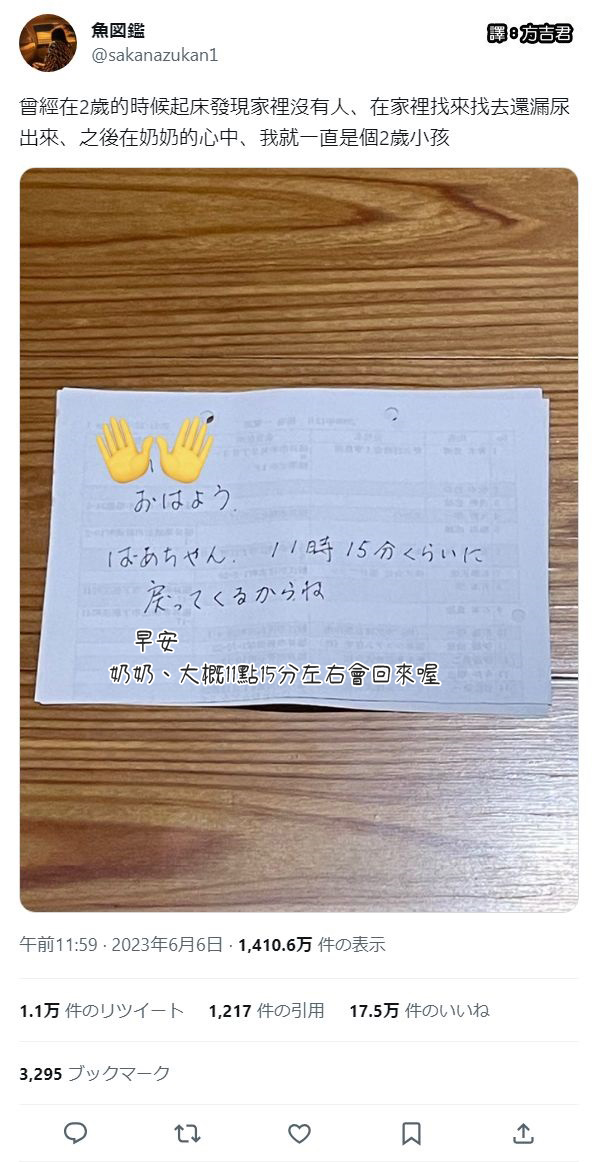 魚図鑑
@sakanazukan1
譯:方吉君
曾經在2歲的時候起床發現家裡沒有人、在家裡找來找去還漏尿
出來、之後在奶奶的心中、我就一直是個2歲小孩
おはよう.
ばあちゃん. 11時15分くらいに
戻ってくるからね
早安
奶奶、大概11點15分左右會回來喔
午前11:59 · 2023年6月6日 · 1,410.6万 件の表示
1.1万 件のリツイート 1,217 件の引用 17.5万 件のいいね
3,295 ブックマーク